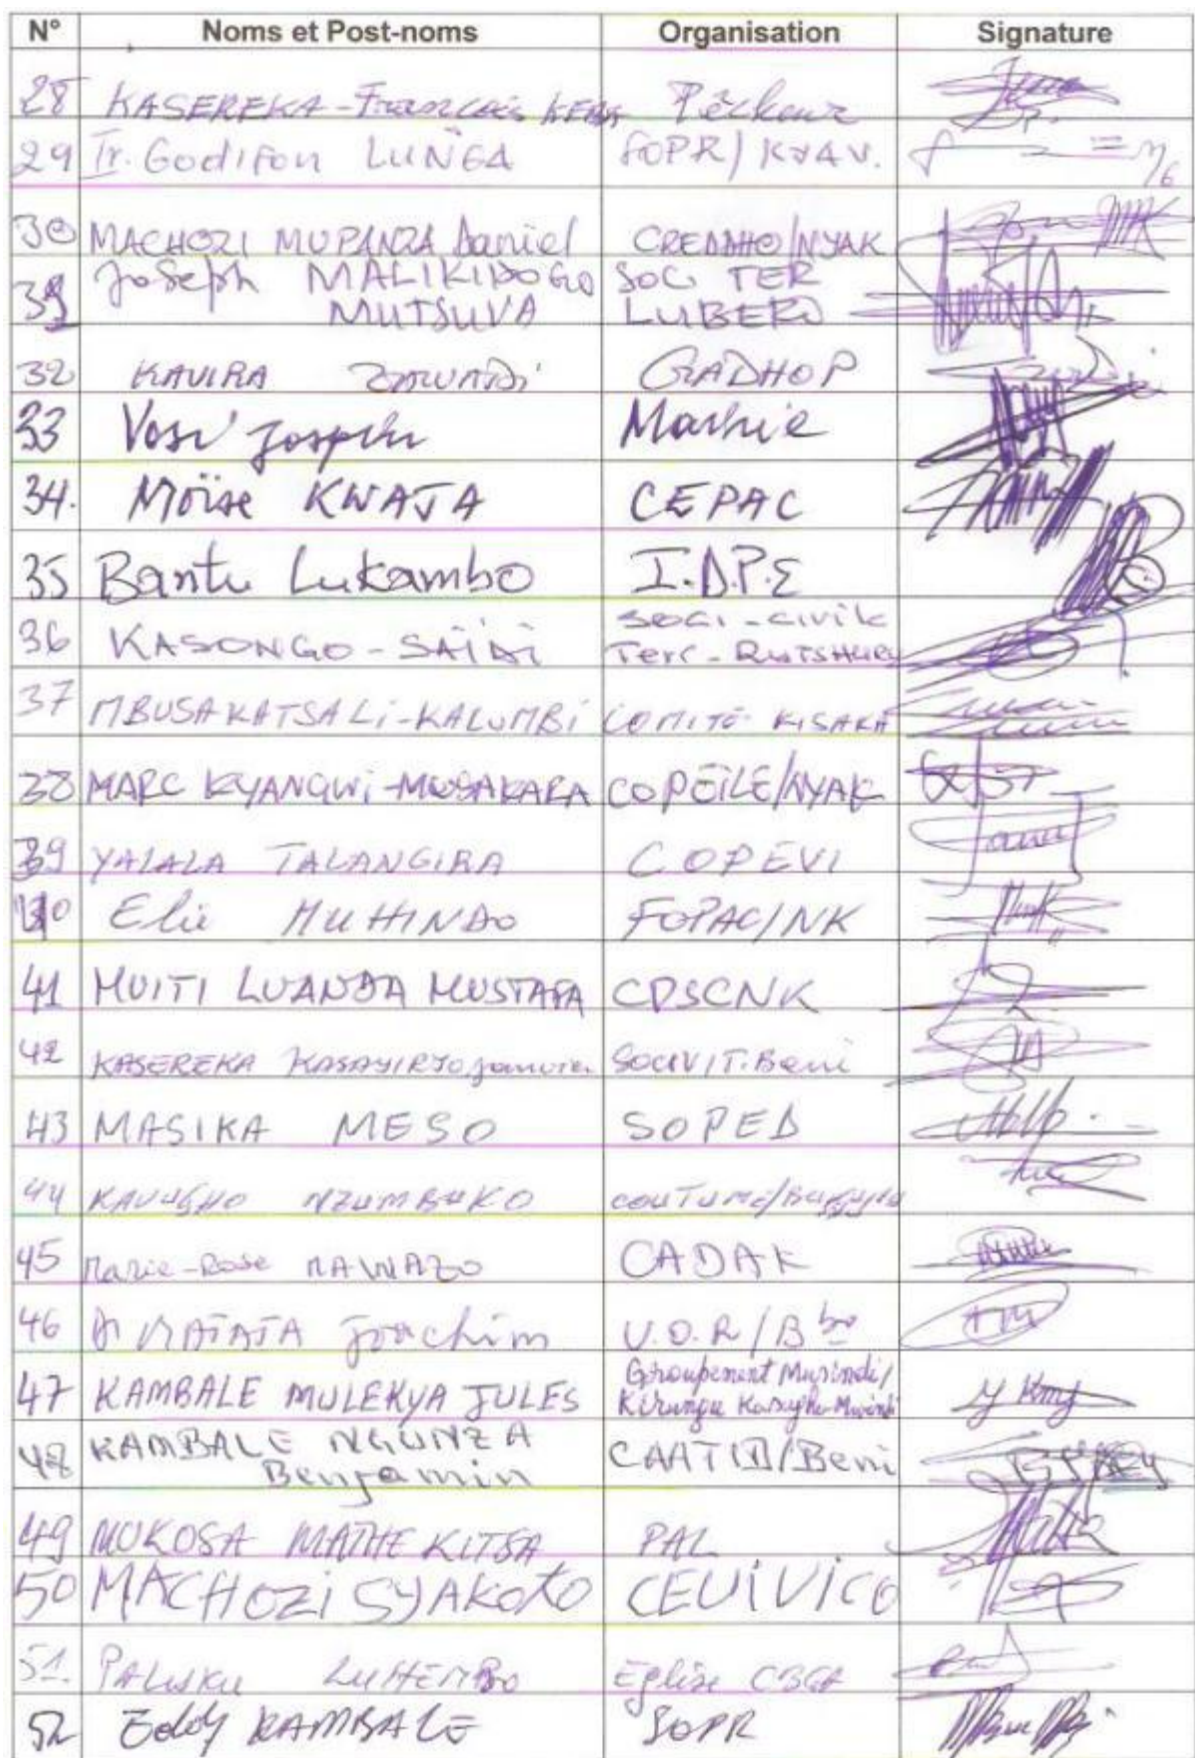 N° Noms et Post-noms Organisation Signature
28 KASEREKA-Francois Pêcheur
29 Ir. Godifon LUNGA FOPR/KYAV.
30 MACHOZI MUPANZA Daniel CREDDHO/NYAK
31 Joseph MALIKIDOGO SOCI TER
MUTSUVA LUBERO
32 KAVIRA GADHOP
33 Joseph Mairie
34. Moïse KWAJA CEPAC
35 Bantu Lukambo I.D.P.E
36 KASONGO-SAÏDI SOCI-civile
Terr-RUTSHURU
37 MBUSA KATSALI-KALUMBI COMITÉ KISAKA
38 MARC KYANGWI-MUSAKARA COPEILE/NYAK
39 YALALA TALANGIRA COPEVI
40 Elie MUHINDO FOPAC/NK
41 MUITI LUANDA MUSTAFA CPSCNK
42 KASEREKA SOCIVIT.Beni
43 MASIKA MESO SOPED
44 KAVUGHO NZUMBUKO
45 Marie-Rose MAWAZO CADAK
46 MATATA Joachim U.O.R/Bbo
47 KAMBALE MULEKYA JULES Groupement Musindi/
Kirungu
48 KAMBALE NGUNZA CAATID/Beni
Benjamin
49 MUKOSA MATHE KITSA PAL
50 MACHOZI SYAKOKO CEUIVICO
51. PALUKU LUHEMBO Eglise CBCA
52 Eddy KAMBALE SOPR